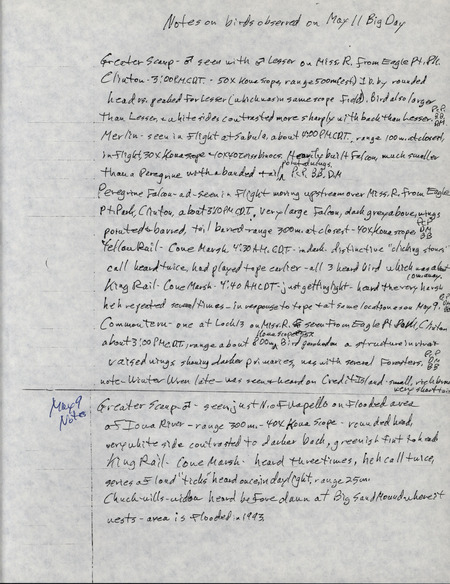 Notes on birds observed on May 11 Big Day
Greater Scaup - ♂ seen with ♂ Lesser on Miss. R. from Eagle Pt. Pk.
Clinton - 3:00 P.M. CDT. - 50X Kowa scope, range 500m (est) I.D. by rounded
head vs. peaked for Lesser (which was in same scope field). Bird also larger
than Lesser, white sides contrasted more sharply with back than Lesser. P.P. B.B. DM.
Merlin - seen in flight at Sabula, about P.M. CDT. range 100 m. at closest,
in flight 30X Kowa scope binocs. Heavily built Falcon, much smaller
than a Peregrine with a banded tail, pointed wings. P.P. B.B. DM
Peregrine Falcon - ad - seen in flight moving upstream over Miss. R. from Eagle
Pt. Park, Clinton about P.M. CDT. Very large falcon, dark grey above, wings
pointed + barred, tail barred range 300 m. at closest - 40X Kowa scope P.P. DM BB
Yellow Rail - Cone Marsh 4:30 A.M. CDT - in dark - distinctive "clicking stones"
call heard twice, had played tape earlier - all 3 heard bird which was about 100m away.
King Rail - Cone Marsh - 4:40 AM CDT - just getting light - heard the very harsh
heh repeated several times - in response to tape at same location as on May 9.
Common tern - one at Lock 13 on Miss. R. seen from Eagle Pt Park, Clinton
about 3:00 P.M. CDT, range about 800m, Kowa scope Bird perched on a structure in river
raised wings showing darker primaries, was with several Foresters. P.P. DM BB
note - Winter Wren late - was seen + heard on Credit Island - small, rich brown very short tail
May 9 Notes
Greater Scaup - ♂ - seen just N. of Wapello on flooded area
of Iowa River - range 300 m - 40X Kowa scope - rounded head,
very white side contrasted to darker back, greenish tint to head
King Rail - Cone Marsh - heard three times, heh call twice,
series of loud "ticks" heard once in daylight, range 25m.
Chuck-wills-widow heard before dawn at Big Sand Mound where it
nests - area is flooded in 1993.